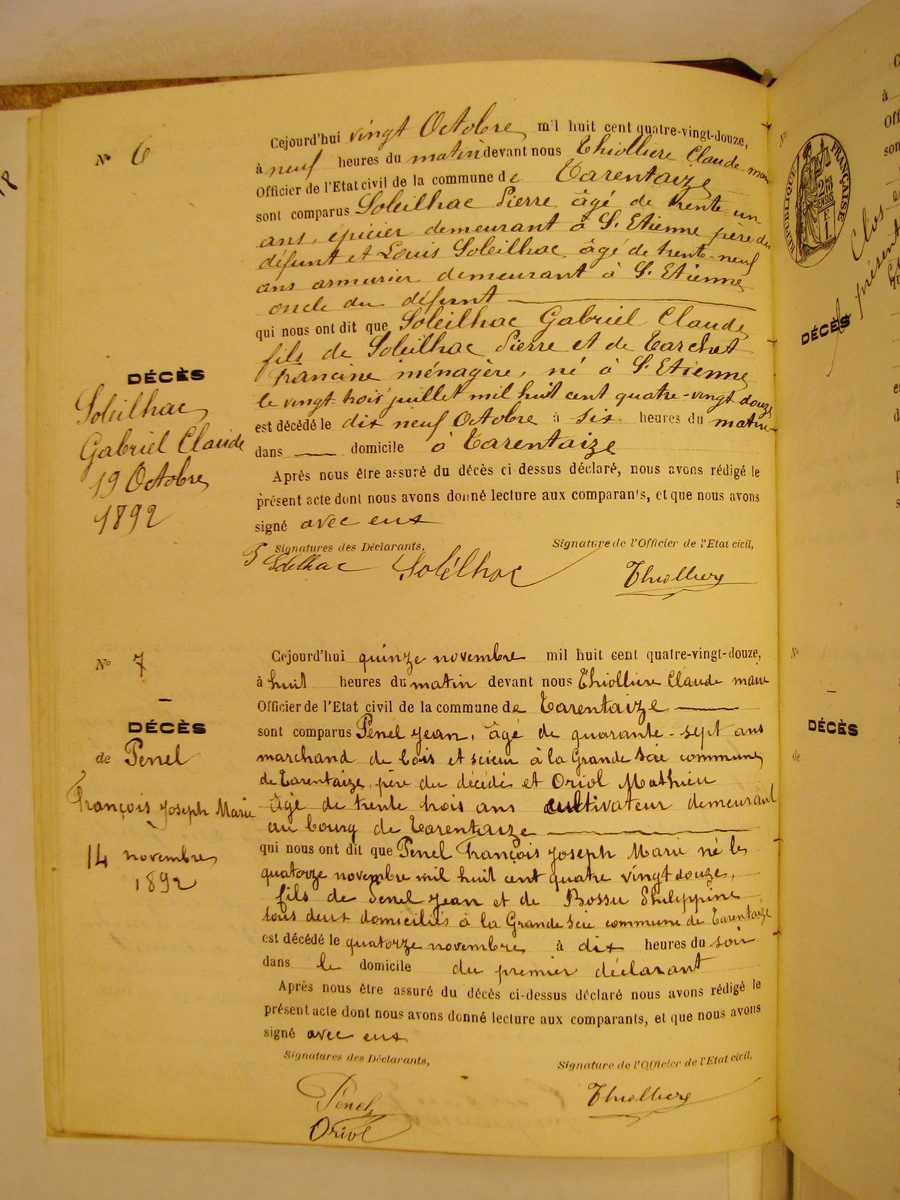 N° 6
Cejourd'hui vingt Octobre mil huit cent quatre-vingt-douze,
à neuf heures du matin devant nous Thiollière Claude maire
Officier de l'Etat civil de la commune de Tarentaize
sont comparus Soleilhac Pierre âgé de trente un
ans, épicier demeurant à St Etienne père du
défunt et Louis Soleilhac âgé de trente-neuf
ans armurier demeurant à St Etienne
oncle du défunt
qui nous ont dit que Soleilhac Gabriel Claude
fils de Soleilhac Pierre et de
Francine ménagère, né à St Etienne
le vingt trois juillet mil huit cent quatre-vingt douze
est décédé le dix neuf Octobre à six heures du matin
dans domicile à Tarentaize
Après nous être assuré du décès ci-dessus déclaré, nous avons rédigé le
présent acte dont nous avons donné lecture aux comparants, et que nous avons
signé avec eux
Signatures des Déclarants, Signature de l'Officier de l'Etat civil,
P Soleilhac Soleilhac Thiolliere
DÉCÈS
Soleilhac
Gabriel Claude
19 Octobre
1892
N° 7
DÉCÈS
de Penel
François Joseph Marie
14 novembre
1892
Cejourd'hui quinze novembre mil huit cent quatre-vingt-douze,
à huit heures du matin devant nous Thiollière Claude maire
Officier de l'Etat civil de la commune de Tarentaize
sont comparus Penel Jean, âgé de quarante-sept ans
marchand de bois et scieur à la Grande Scie commune
de Tarentaize, père du décédé et Oriol Mathieu
âgé de trente trois ans cultivateur demeurant
au bourg de Tarentaize
qui nous ont dit que Penel François Joseph Marie né le
quatorze novembre mil huit cent quatre vingt douze,
fils de Penel Jean et de Bossu Philippine
tous deux domiciliés à la Grande Scie commune de Tarentaize
est décédé le quatorze novembre à dix heures du soir
dans le domicile du premier déclarant
Après nous être assuré du décès ci-dessus déclaré nous avons rédigé le
présent acte dont nous avons donné lecture aux comparants, et que nous avons
signé avec eux
Signatures des Déclarants, Signature de l'Officier de l'Etat civil,
Penel Thiolliere
Oriol
RÉPUBLIQUE FRANÇAISE
Clos
présent
DÉCÈS
N°
DÉCÈS
de